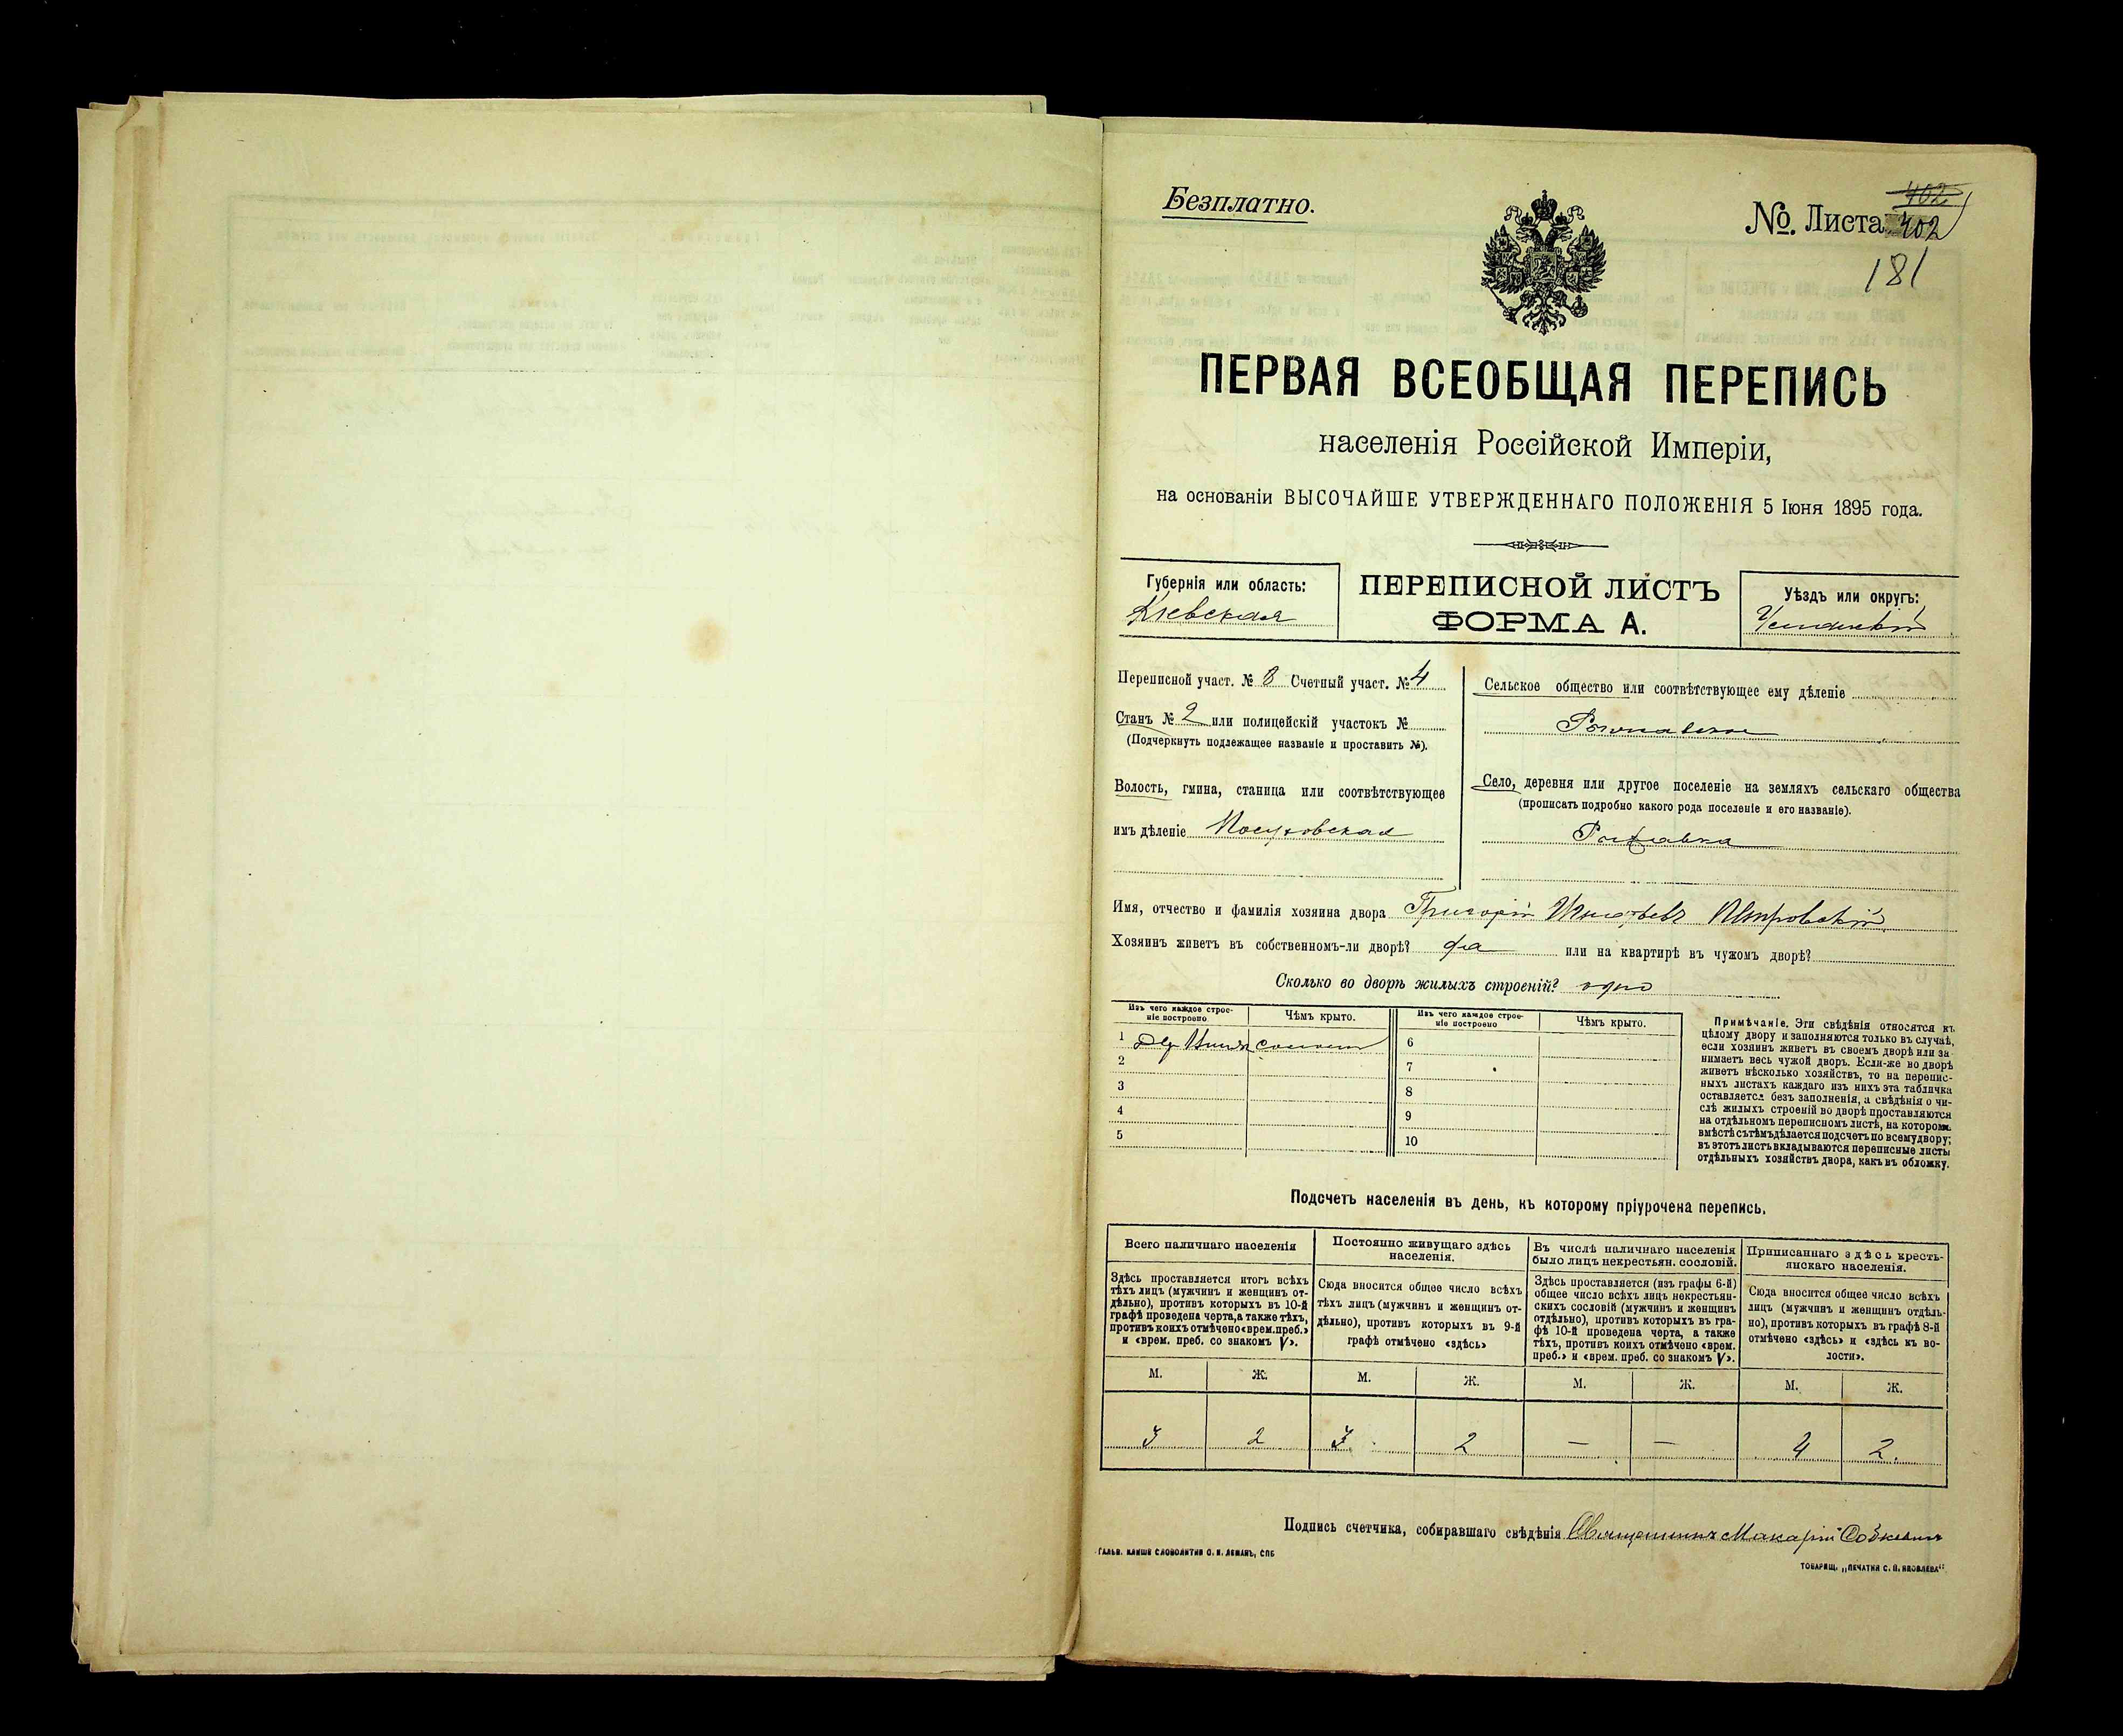 Безплатно.
№. Листа 402
402
181
ПЕРВАЯ ВСЕОБЩАЯ ПЕРЕПИСЬ
населенія Россійской Имперіи,
на основаніи ВЫСОЧАЙШЕ УТВЕРЖДЕННАГО ПОЛОЖЕНІЯ 5 Іюня 1895 года.
Губернія или область:
Кіевская
ПЕРЕПИСНОЙ ЛИСТЪ
ФОРМА А.
Уѣздъ или округъ:
Уманскій
Переписной участ. № 8 Счетный участ. № 4
Станъ № 2 или полицейскій участокъ №
(Подчеркнуть подлежащее названіе и проставить №).
Волость, гмина, станица или соотвѣтствующее
имъ дѣленіе Посуховская
Сельское общество или соотвѣтствующее ему дѣленіе
Село, деревня или другое поселеніе на земляхъ сельскаго общества
(прописать подробно какого рода поселеніе и его названіе).
Имя, отчество и фамилія хозяина двора Григорій Игнатьевъ Петровскій
Хозяинъ живетъ въ собственномъ-ли дворѣ? да или на квартирѣ въ чужомъ дворѣ?
Сколько во дворѣ жилыхъ строеній? одно
Изъ чего каждое строе-
ніе построено
Чѣмъ крыто.
Изъ чего каждое строе-
ніе построено
Чѣмъ крыто.
1
2
3
4
5
6
7
8
9
10
Примѣчаніе. Эти свѣдѣнія относятся къ
цѣлому двору и заполняются только въ случаѣ,
если хозяинъ живетъ въ своемъ дворѣ или за
нимаетъ весь чужой дворъ. Если-же во дворѣ
живетъ нѣсколько хозяйствъ, то на перепис-
ныхъ листахъ каждаго изъ нихъ эта табличка
оставляется безъ заполненія, а свѣдѣнія о чи-
слѣ жилыхъ строеній во дворѣ проставляются
на отдѣльномъ переписномъ листѣ, на которомъ
вмѣстѣ съ тѣмъ дѣлается подсчетъ по всему двору;
въ этотъ листъ вкладываются переписные листы
отдѣльныхъ хозяйствъ двора, какъ въ обложку.
Подсчетъ населенія въ день, къ которому пріурочена перепись.
Всего наличнаго населенія
Здѣсь проставляется итогъ всѣхъ
тѣхъ лицъ (мужчинъ и женщинъ от-
дѣльно), противъ которыхъ въ 10-й
графѣ проведена черта, а также тѣхъ,
противъ коихъ отмѣчено «врем. преб.»
и «врем. преб. со знакомъ V».
Постоянно живущаго здѣсь
населенія.
Сюда вносится общее число всѣхъ
тѣхъ лицъ (мужчинъ и женщинъ от-
дѣльно), противъ которыхъ въ 9-й
графѣ отмѣчено «здѣсь»
Въ числѣ наличнаго населенія
было лицъ некрестьян. сословій.
Здѣсь проставляется (изъ графы 6-й)
общее число всѣхъ лицъ некрестьян-
скихъ сословій (мужчинъ и женщинъ
отдѣльно), противъ которыхъ въ гра-
фѣ 10-й проведена черта, а также
тѣхъ, противъ коихъ отмѣчено «врем.
преб.» и «врем. преб. со знакомъ V».
Приписаннаго здѣсь кресть-
янскаго населенія.
Сюда вносится общее число всѣхъ
лицъ (мужчинъ и женщинъ отдѣль-
но), противъ которыхъ въ графѣ 8-й
отмѣчено «здѣсь» и «здѣсь къ во-
лости».
М. Ж. М. Ж. М. Ж. М. Ж.
3 2 3 2 — — 4 2.
Подпись счетчика, собиравшаго свѣдѣнія Священникъ Макарій
ГАЛЬВ. КЛИШЕ СЛОВОЛИТНИ О. И. ЛЕМАНЪ, СПБ
ТОВАРИЩ. „ПЕЧАТНЯ С. П. ЯКОВЛЕВА“